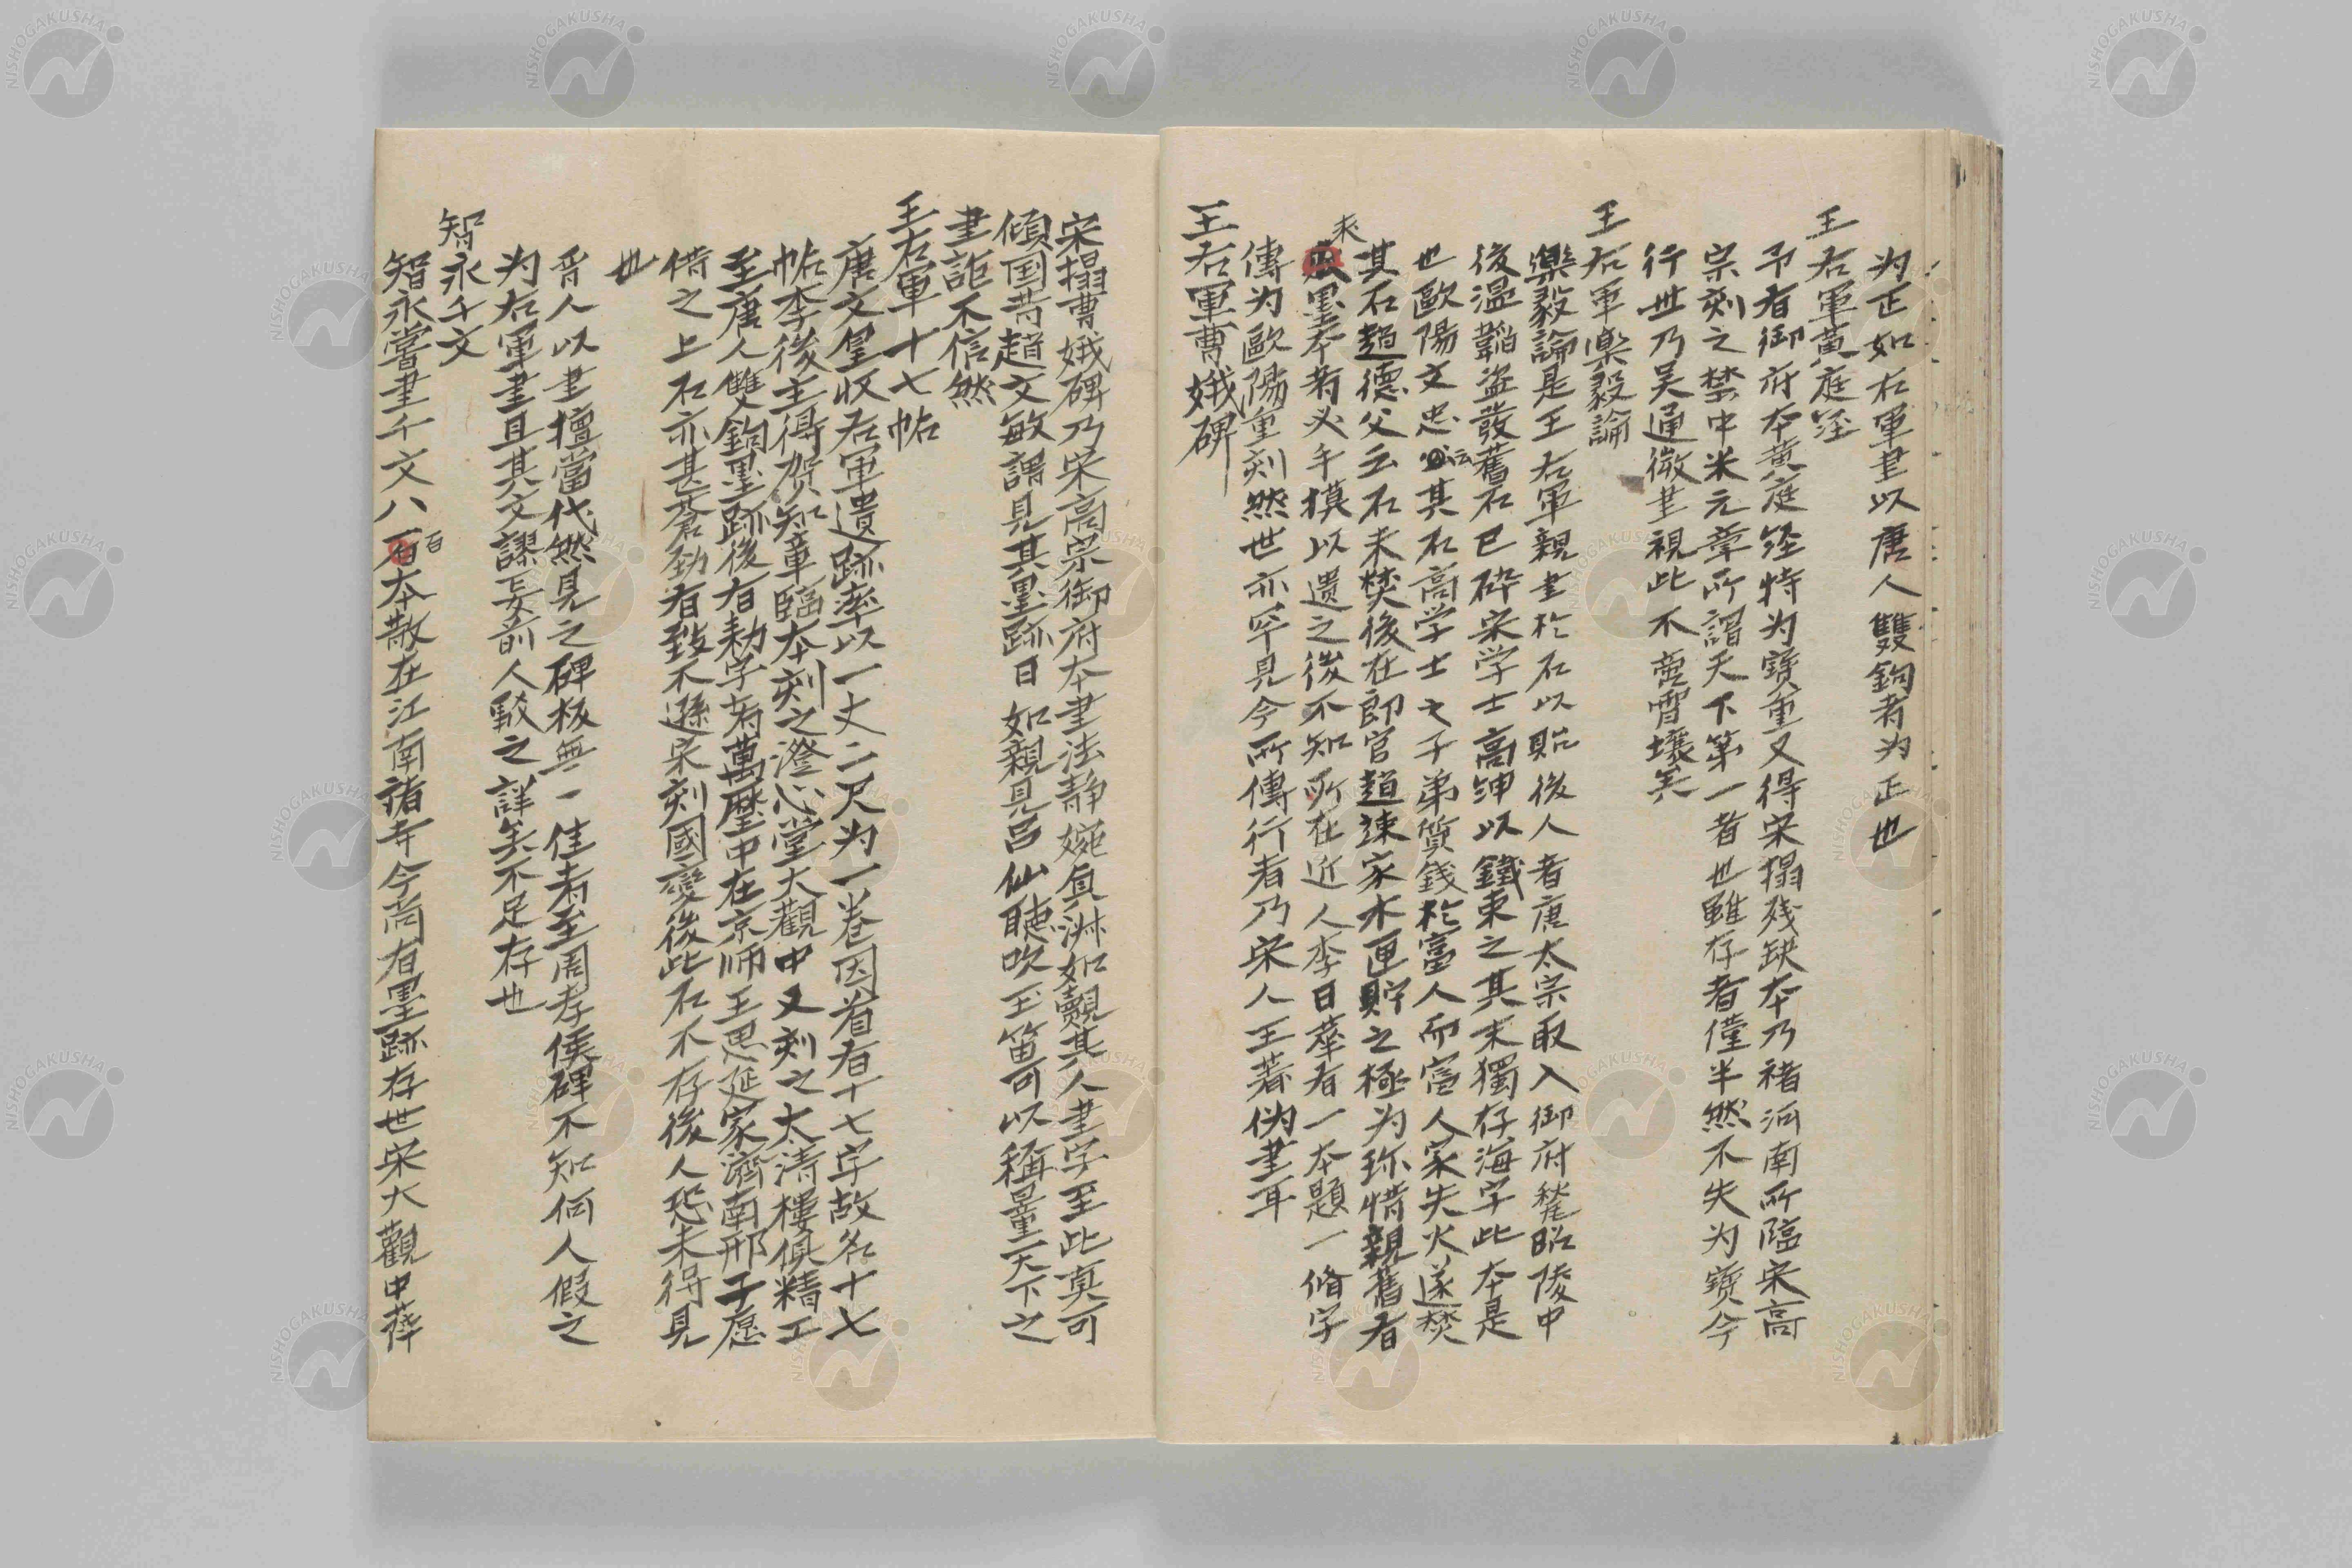 为正如右軍書以唐人雙鉤者为正也
王右軍黄庭经
予者御府本黄庭经特为寶重又得宋搨残缺本乃褚河南所臨宋高
宗刻之禁中米元章所謂天下第一者也雖存者僅半然不失为寶今
行世乃吴通微書視此不啻霄壤矣
王右軍樂毅論
樂毅論是王右軍親書於石以貽後人者唐太宗取入御府葬昭陵中
後温韜盗發舊石已砕宋学士高紳以鐵束之其末獨存海字此本是
也歐陽文忠公云其石高学士之子弟質錢於富人而富人家失火遂焚
其石趙德父云石未焚後在郎官趙竦家木匣貯之極为珎惜親舊有
求墨本者必手摸以遗之後不知所在近人李日華有一本題一脩字
傳为歐陽重刻然世亦罕見今所傳行者乃宋人王著偽書耳
王右軍曹娥碑
宋搨曹娥碑乃宋高宗御府本書法静婉貞淋如覿其人書字至此真可
傾国昔趙文敏謂見其墨跡日如親見吕仙聽吹玉笛可以稱量天下之
書詎不信然
王右軍十七帖
唐文皇收右軍遺跡率以一丈二尺为一卷因首有十七字故名十七
帖李後主得贺知章臨本刻之澄心堂大觀中又刻之太清樓俱精工
至唐人雙鉤墨跡後有勅字者萬歷中在京师王思延家濟南邢子愿
借之上石亦甚蒼勁有致不遜宋刻國變後此石不存後人恐未得見
也
晋人以書擅當代然見之碑板無一佳者至周孝侯碑不知何人假之
为右軍書且其文謬妄前人駁之詳矣不足存也
智永千文
智永嘗書千文八百本散在江南諸寺今尚有墨跡存世宋大觀中薛
NISHOGAKUSHA